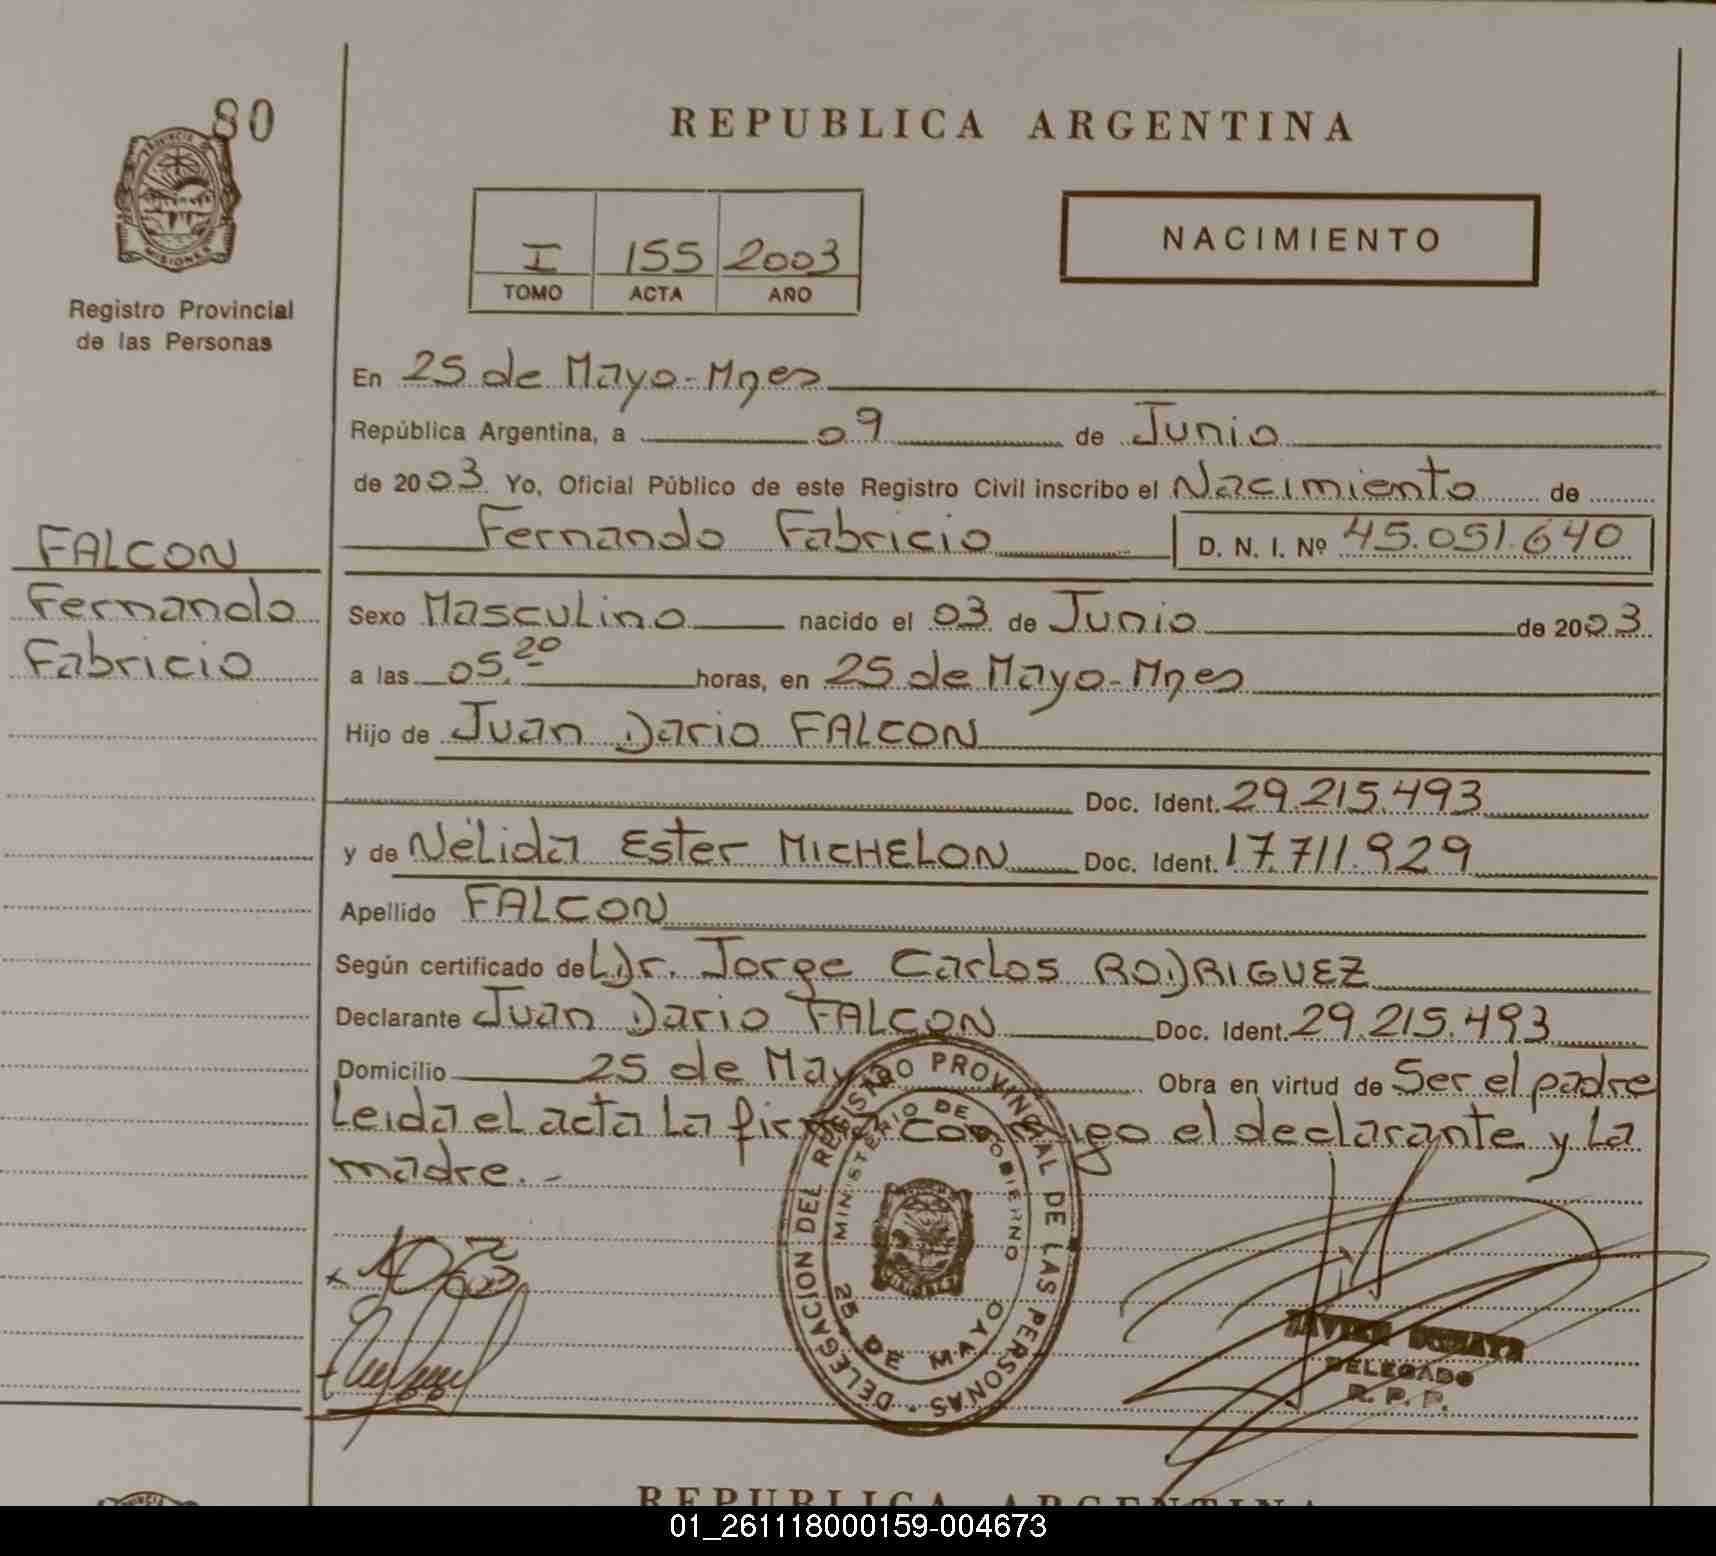 80
PROVINCIA
MISIONES
Registro Provincial
de las Personas
REPUBLICA ARGENTINA
I 155 2003
TOMO ACTA AÑO
NACIMIENTO
En 25 de Mayo-Mnes
República Argentina, a 09 de Junio
de 2003 Yo, Oficial Público de este Registro Civil inscribo el Nacimiento de
Fernando Fabricio D. N. I. Nº 45.051.640
FALCON
Fernando
Fabricio
Sexo Masculino nacido el 03 de Junio de 2003
a las 05,20 horas, en 25 de Mayo-Mnes
Hijo de Juan Dario FALCON
Doc. Ident. 29.215.493
y de Nélida Ester MICHELON Doc. Ident. 17.711.929
Apellido FALCON
Según certificado de Dr. Jorge Carlos RODRIGUEZ
Declarante Juan Dario FALCON Doc. Ident. 29.215.493
Domicilio 25 de Mayo Obra en virtud de Ser el padre
Leida el acta La firma conmigo el declarante y La
madre.-
DELEGACION DEL REGISTRO PROVINCIAL DE LAS PERSONAS
MINISTERIO DE GOBIERNO
25 DE MAYO
DELEGADO
R. P. P.
REPUBLICA ARGENTINA
01_261118000159-004673